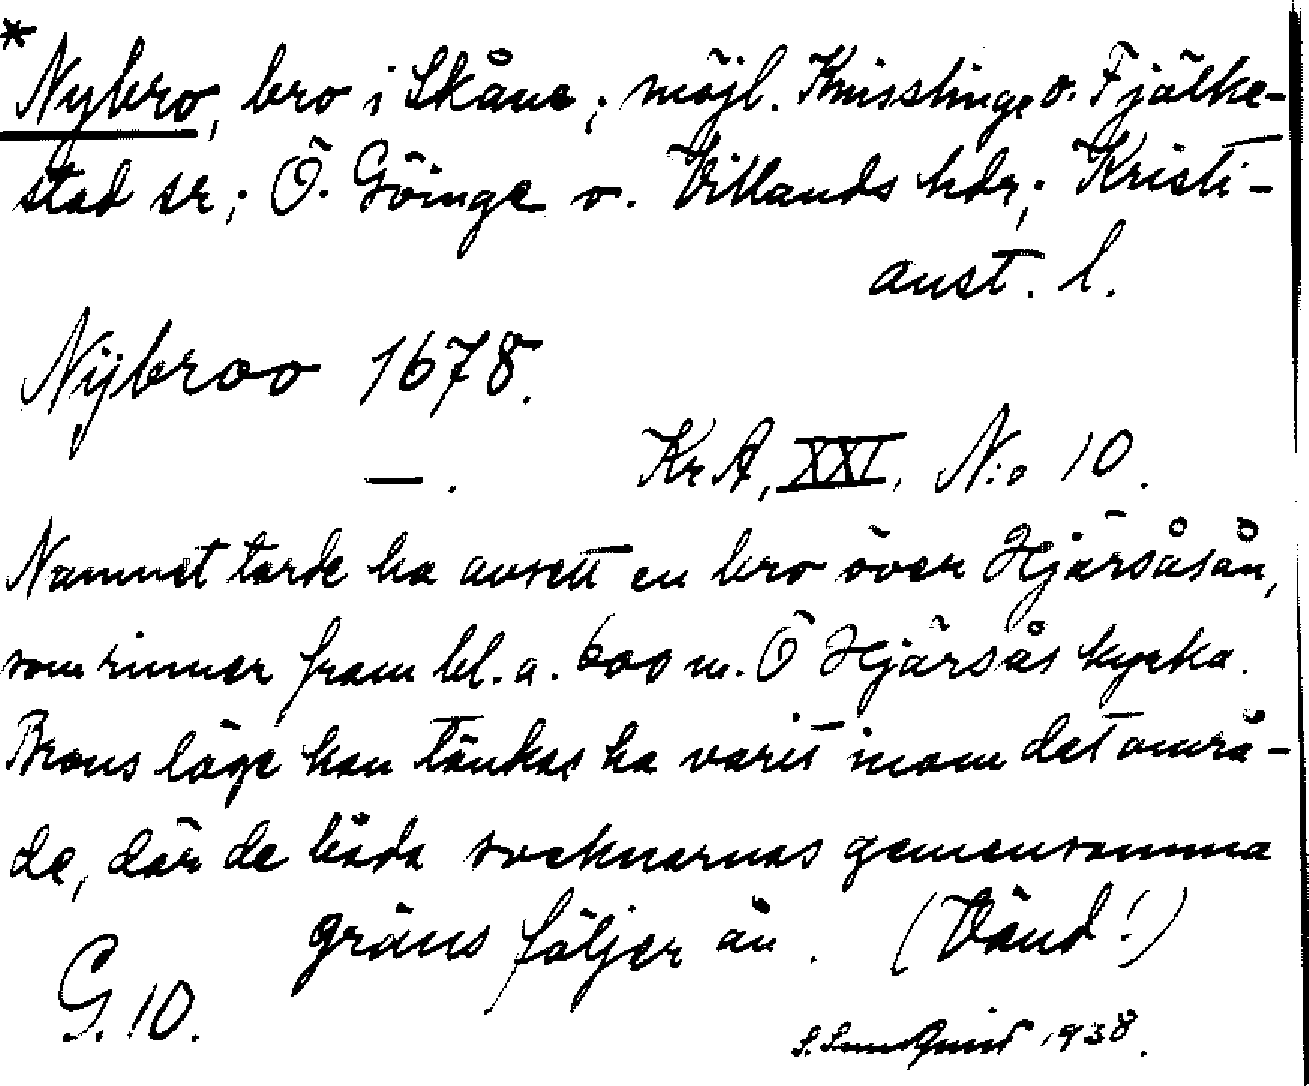 *Nybro, bro i Skåne; möjl. Knisslinge o. Fjälke-
stad sr; Ö. Göinge o. Villands hdr; Kristi-
anst. l.
Nÿbroo 1678.
— . KrA, XXI, N:o 10.
Namnet torde ha avsett en bro över Hjärsåsån,
som rinner fram bl. a. 600 m. Ö Hjärsås kyrka.
Brons läge kan tänkas ha varit inom det områ-
de, där de båda socknarnas gemensamma
gräns följer ån. (Vänd!)
G. 10.
1938.